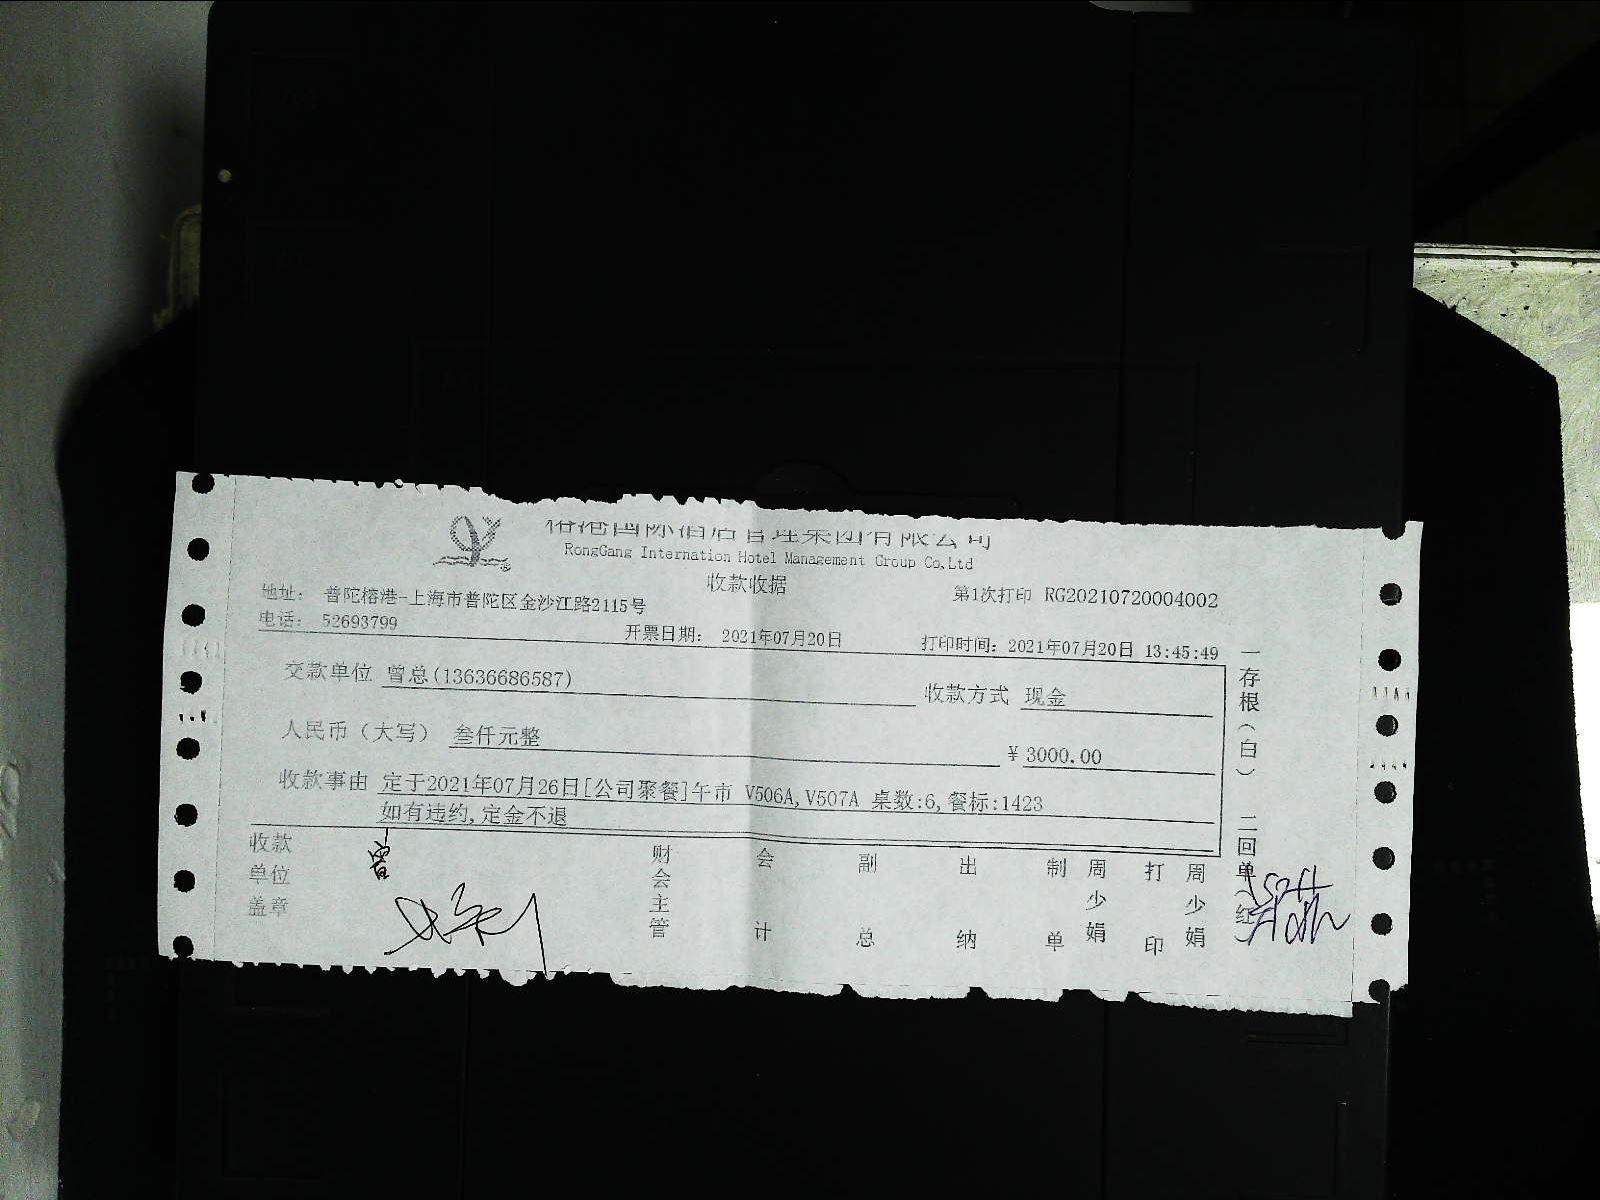 榕港国际酒店管理集团有限公司
RongGang Internation Hotel Management Group Co,Ltd
收款收据
第1次打印 RG20210720004002
地址： 普陀榕港-上海市普陀区金沙江路2115号
电话： 52693799
开票日期： 2021年07月20日
打印时间：2021年07月20日 13:45:49
交款单位 曾总(13636686587)
收款方式 现金
人民币（大写） 叁仟元整
¥ 3000.00
收款事由 定于2021年07月26日[公司聚餐]午市 V506A,V507A 桌数:6,餐标:1423
如有违约,定金不退
收款单位盖章
财会主管
会计
副总
出纳
制单 周少娟
打印 周少娟
一存根(白) 二回单(红)